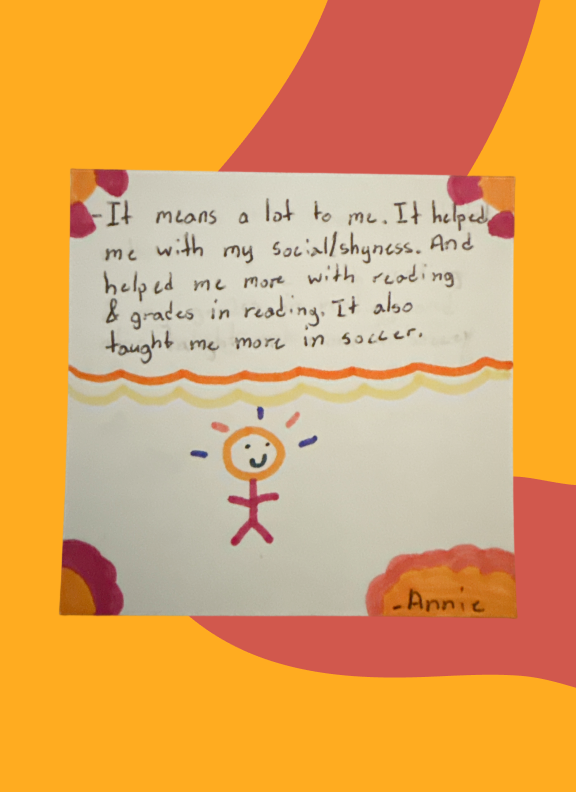 -It means a lot to me. It helped
me with my social/shyness. And
helped me more with reading
& grades in reading. It also
taught me more in soccer.
-Annie